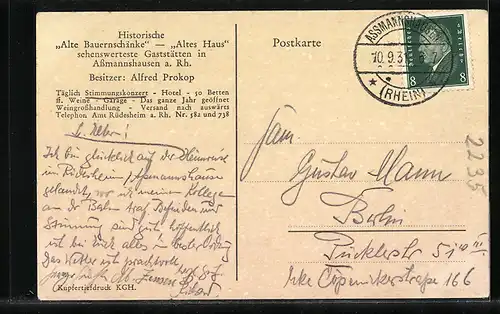 Historische
„Alte Bauernschänke" — „Altes Haus"
sehenswerteste Gaststätten in
Aßmannshausen a. Rh.
Besitzer: Alfred Prokop
Täglich Stimmungskonzert - Hotel - 50 Betten
ff. Weine - Garage - Das ganze Jahr geöffnet
Weingroßhandlung - Versand nach auswärts
Telephon Amt Rüdesheim a. Rh. Nr. 582 und 738
Ich bin glücklich auf der Heimreise
in Rüdesheim / Assmannshausen
gelandet, wo ich meinen Kollegen
an der Bahn traf. Befinden und
Stimmung sind gut, hoffentlich
ist bei Euch alles in bester Ordnung
Das Wetter ist prachtvoll
Kupfertiefdruck KGH.
Postkarte
ASSMANNSHAUSEN
10.9.31
(RHEIN)
8 8
2235
Fam.
Gustav Mann
Berlin
Pücklerstr 51
Ecke Cöpenickerstraße 166